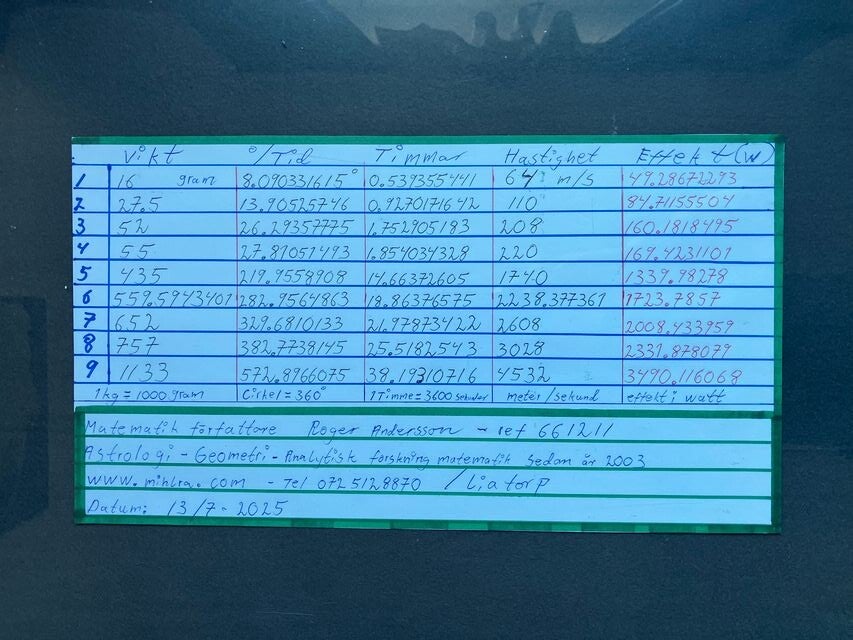 Vikt °/Tid Timmar Hastighet Effekt (W)
1 16 gram 8.090331615° 0.539355441 64 m/s 49.28672293
2 27.5 13.90525746 0.9270171642 110 84.71155504
3 52 26.29357775 1.752905183 208 160.1818495
4 55 27.81051493 1.854034328 220 169.4231101
5 435 219.9558908 14.66372605 1740 1339.98278
6 559.5943401 282.9564863 18.86376575 2238.377361 1723.7857
7 652 329.6810133 21.97873422 2608 2008.433959
8 757 382.7738145 25.5182543 3028 2331.878079
9 1133 572.8966075 38.19310716 4532 3490.116068
1kg = 1000 gram Cirkel = 360° 1 Timme = 3600 sekunder meter/sekund effekt i watt
Matematik författare Roger Andersson - ref 661211
Astrologi - Geometri - Analytisk forskning matematik sedan år 2003
www.mihlra.com - Tel 0725128870 / Liatorp
Datum: 13/7-2025